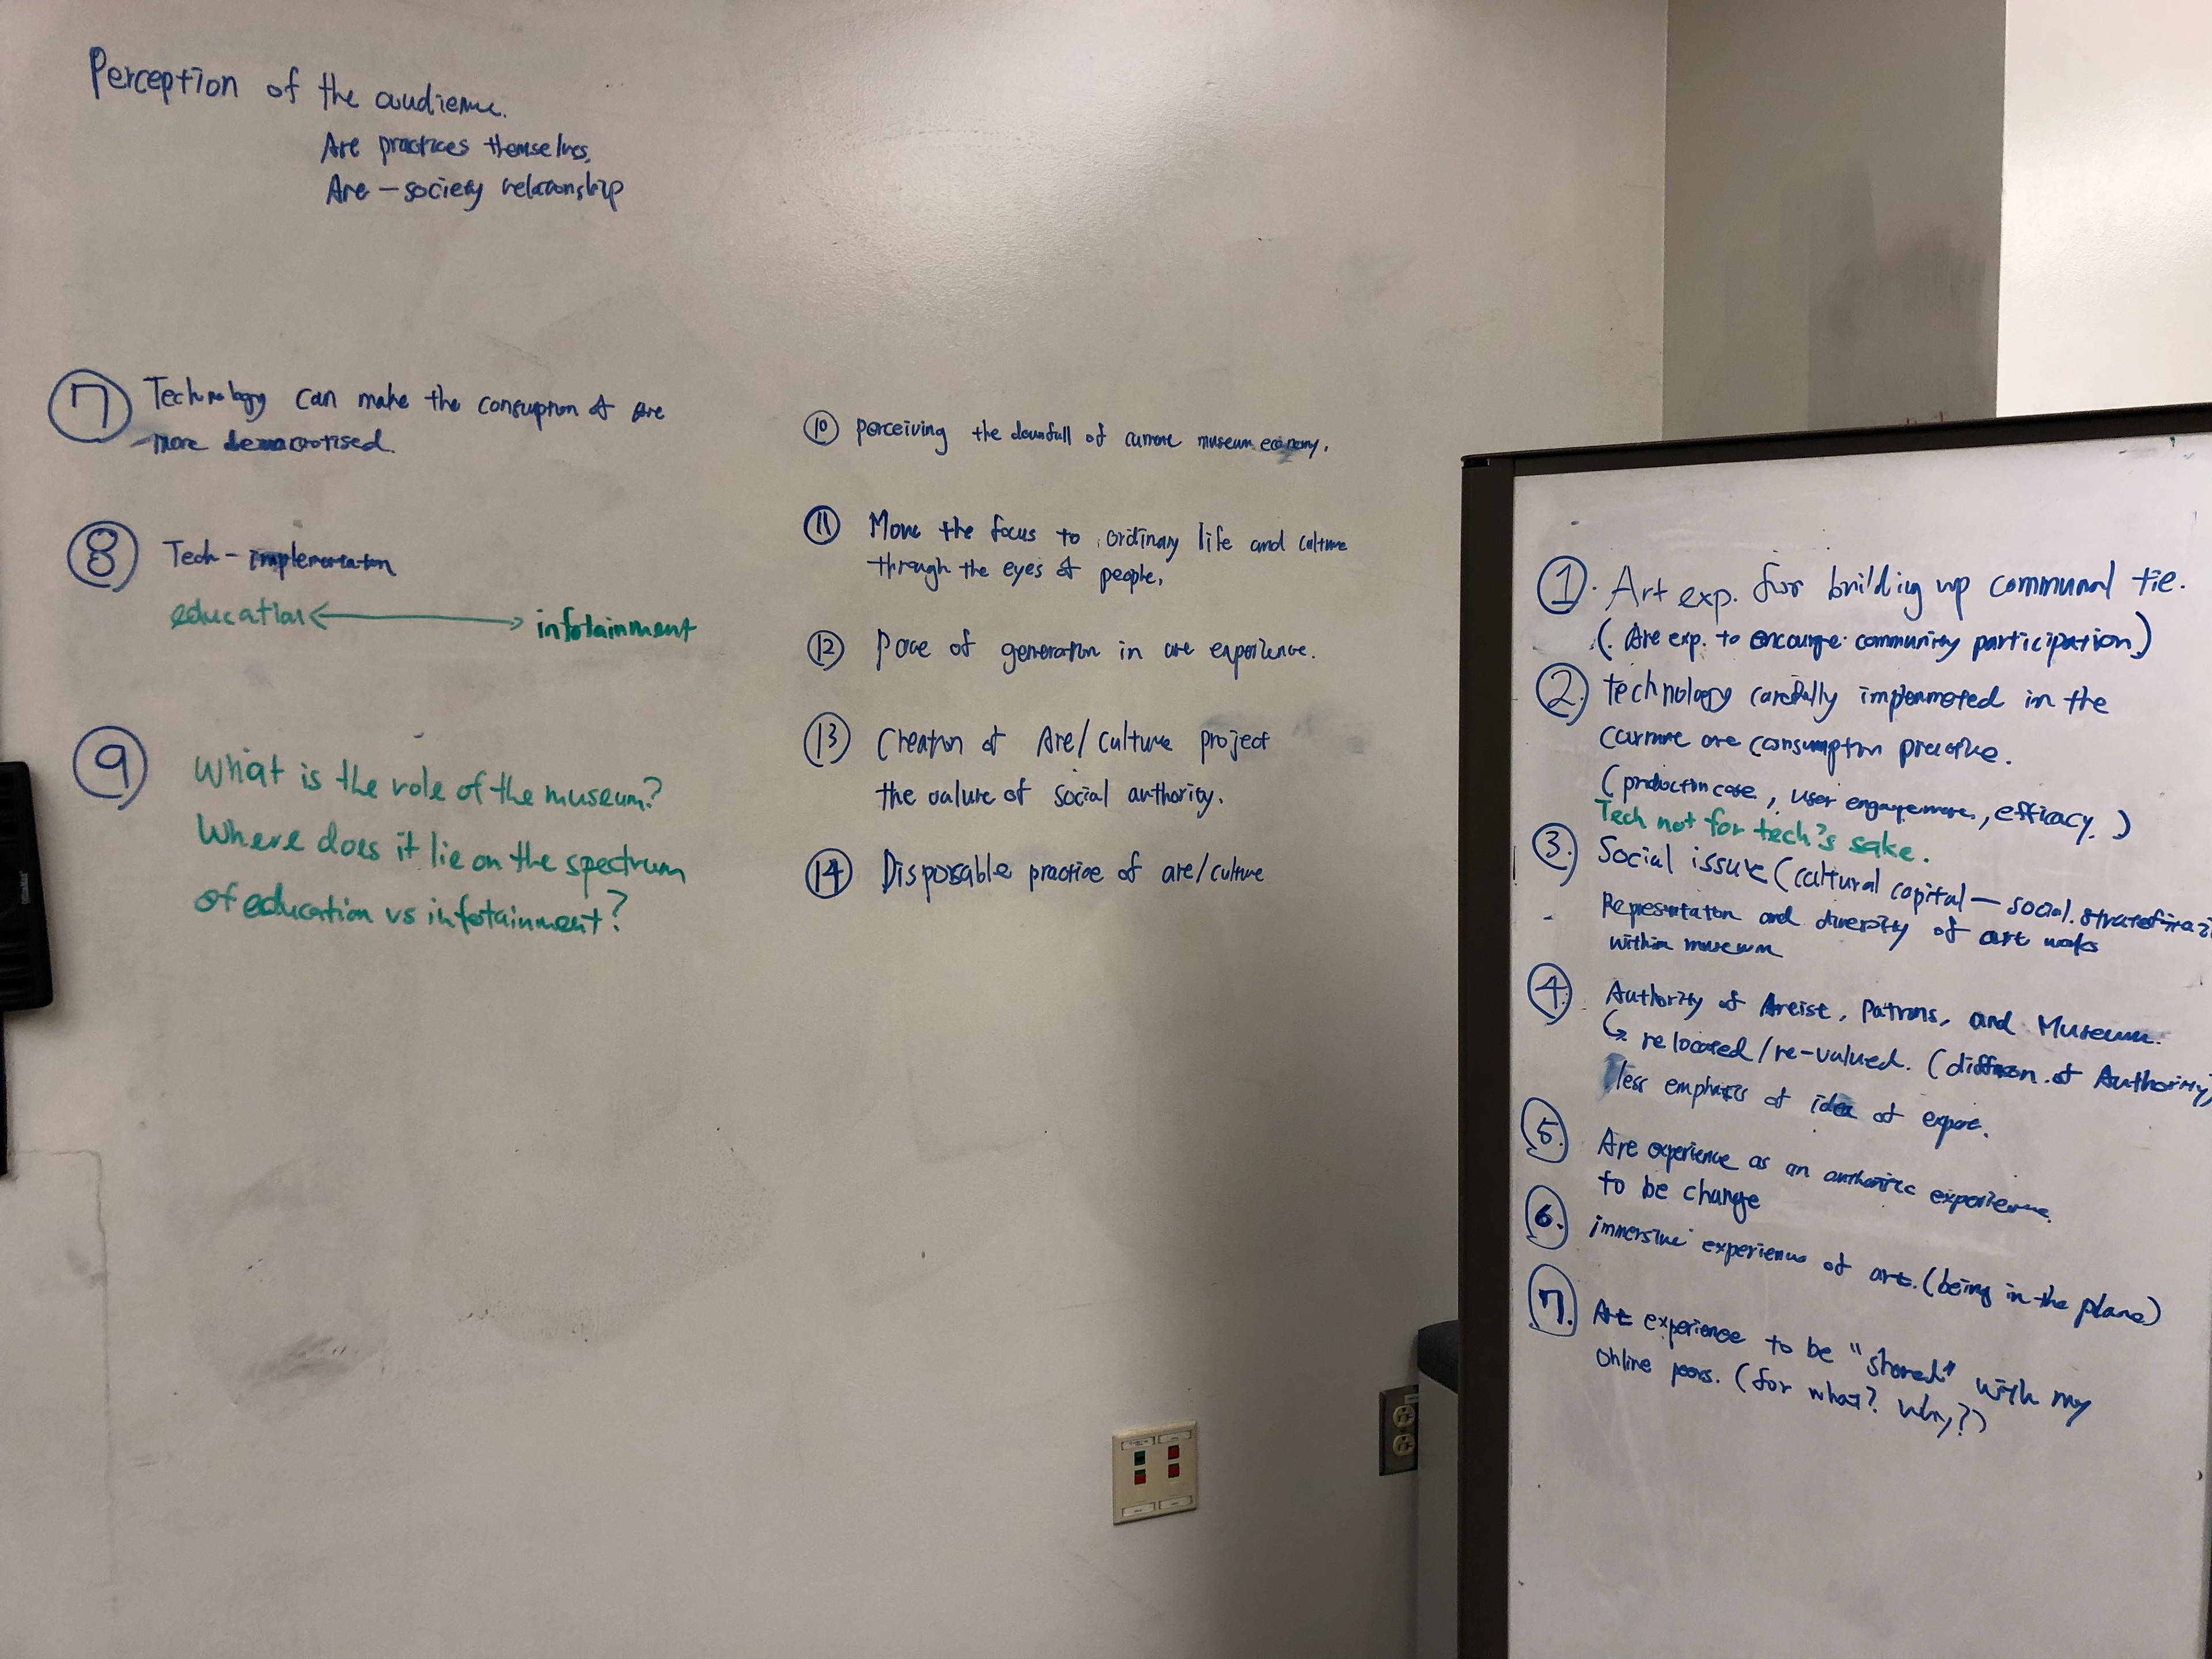 Perception of the audience.
Art practices themselves,
Art - society relationship
7 Technology can make the consuption of art
more democrotised.
8 Tech - implementation
education ↔ infotainment
9 What is the role of the museum?
Where does it lie on the spectrum
of education vs infotainment?
10 perceiving the downfall of current museum economy.
11 Move the focus to ordinary life and culture
through the eyes of people,
12 of generation in art experience.
13 Creation of Art/culture project
the value of social authority.
14 Disposable practice of art/culture
1. Art exp. for building up communal tie.
(. Art exp. to encourge community participation)
2. technology carefully implemented in the
current art consumption practice.
(production cost, user engagement, efficacy.)
Tech not for tech's sake.
3. Social issue (cultural capital — social.
Representation and diversity of art works
within museum
4. Authority of Artist, Patrons, and Museum.
↳ relocated/re-valued. (diffusion of Authority)
less emphasis of idea of expert.
5. Art experience as an authentic experience
to be change
6. immersive experience of art. (being in the place)
7. Art experience to be "shared" with my
online peers. (for what? why?)